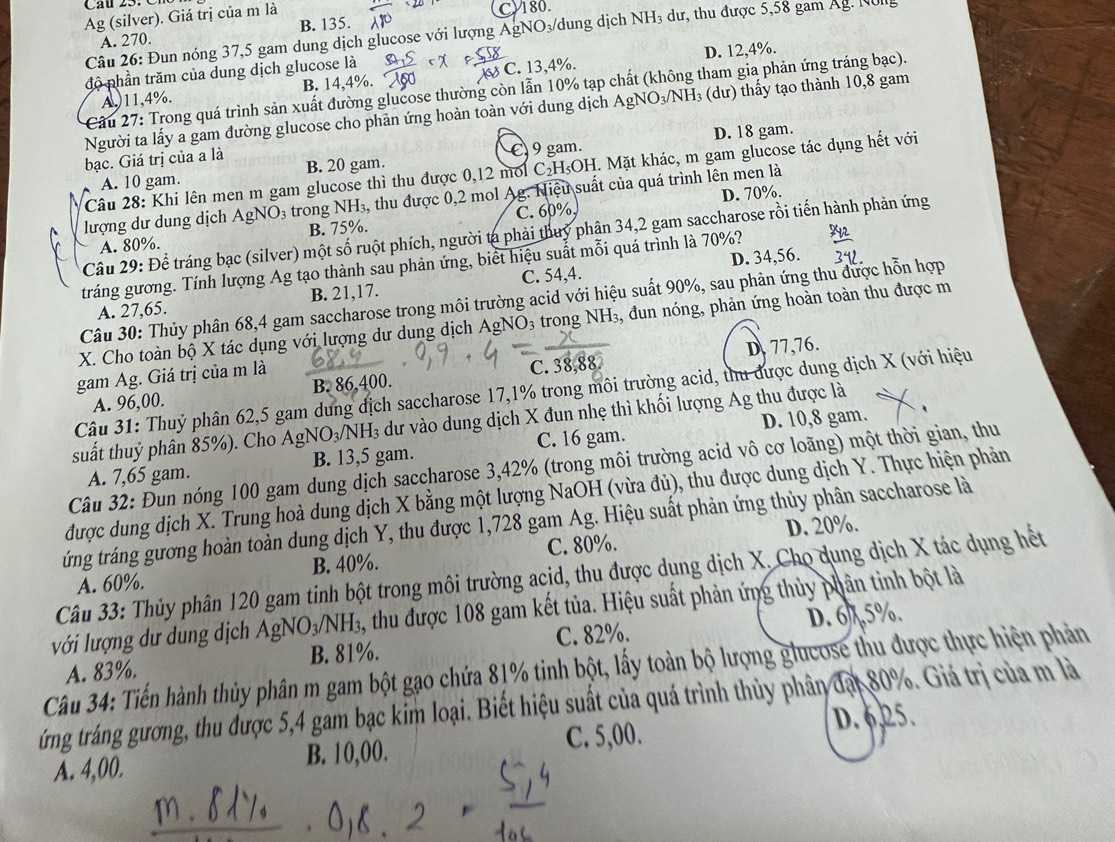 Ag (silver). Giá trị của m là
A. 270.
B. 135.
C. 180.
Câu 26: Đun nóng 37,5 gam dung dịch glucose với lượng AgNO₃/dung dịch NH₃ dư, thu được 5,58 gam Ag. Nồng
độ phần trăm của dung dịch glucose là
A. 11,4%.
B. 14,4%.
C. 13,4%.
D. 12,4%.
Câu 27: Trong quá trình sản xuất đường glucose thường còn lẫn 10% tạp chất (không tham gia phản ứng tráng bạc).
Người ta lấy a gam đường glucose cho phản ứng hoàn toàn với dung dịch AgNO₃/NH₃ (dư) thấy tạo thành 10,8 gam
bạc. Giá trị của a là
A. 10 gam.
B. 20 gam.
C. 9 gam.
D. 18 gam.
Câu 28: Khi lên men m gam glucose thì thu được 0,12 mol C₂H₅OH. Mặt khác, m gam glucose tác dụng hết với
lượng dư dung dịch AgNO₃ trong NH₃, thu được 0,2 mol Ag. Hiệu suất của quá trình lên men là
A. 80%.
B. 75%.
C. 60%.
D. 70%.
Câu 29: Để tráng bạc (silver) một số ruột phích, người ta phải thuỷ phân 34,2 gam saccharose rồi tiến hành phản ứng
tráng gương. Tính lượng Ag tạo thành sau phản ứng, biết hiệu suất mỗi quá trình là 70%?
A. 27,65.
B. 21,17.
C. 54,4.
D. 34,56.
342
Câu 30: Thủy phân 68,4 gam saccharose trong môi trường acid với hiệu suất 90%, sau phản ứng thu được hỗn hợp
X. Cho toàn bộ X tác dụng với lượng dư dung dịch AgNO₃ trong NH₃, đun nóng, phản ứng hoàn toàn thu được m
gam Ag. Giá trị của m là
68,4 . 0,9 . 4 = x
A. 96,00.
B. 86,400.
C. 38,88.
D. 77,76.
Câu 31: Thuỷ phân 62,5 gam dung dịch saccharose 17,1% trong môi trường acid, thu được dung dịch X (với hiệu
suất thuỷ phân 85%). Cho AgNO₃/NH₃ dư vào dung dịch X đun nhẹ thì khối lượng Ag thu được là
A. 7,65 gam.
B. 13,5 gam.
C. 16 gam.
D. 10,8 gam.
Câu 32: Đun nóng 100 gam dung dịch saccharose 3,42% (trong môi trường acid vô cơ loãng) một thời gian, thu
được dung dịch X. Trung hoà dung dịch X bằng một lượng NaOH (vừa đủ), thu được dung dịch Y. Thực hiện phản
ứng tráng gương hoàn toàn dung dịch Y, thu được 1,728 gam Ag. Hiệu suất phản ứng thủy phân saccharose là
A. 60%.
B. 40%.
C. 80%.
D. 20%.
Câu 33: Thủy phân 120 gam tinh bột trong môi trường acid, thu được dung dịch X. Cho dung dịch X tác dụng hết
với lượng dư dung dịch AgNO₃/NH₃, thu được 108 gam kết tủa. Hiệu suất phản ứng thủy phân tinh bột là
A. 83%.
B. 81%.
C. 82%.
D. 67,5%.
Câu 34: Tiến hành thủy phân m gam bột gạo chứa 81% tinh bột, lấy toàn bộ lượng glucose thu được thực hiện phản
ứng tráng gương, thu được 5,4 gam bạc kim loại. Biết hiệu suất của quá trình thủy phân đạt 80%. Giá trị của m là
A. 4,00.
B. 10,00.
C. 5,00.
D. 6,25.
m . 81% . 0,8 . 2 = 5,4